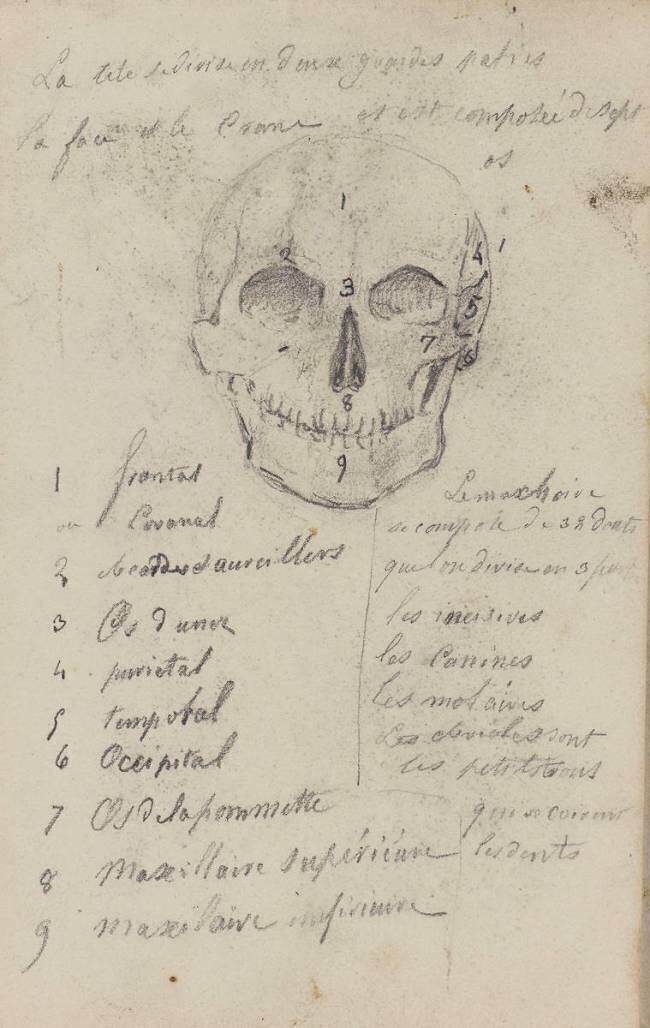 La tete se divise en deux grandes paties
la face et le Crane et est composée de sept
os
1
2
3
4
1
5
6
7
8
9
1 frontal
ou Coronal
2
3 Os du nez
4 parietal
5 temporal
6 Occipital
7 Os de la pommette
8 Maxillaire supérieure
9 maxilaire inferieure
Le maxhoire
se compose de 32 dents
que l'on divise en 3
les incisives
les Canines
les molaires
Les sont
les petits trous
qui
les dents